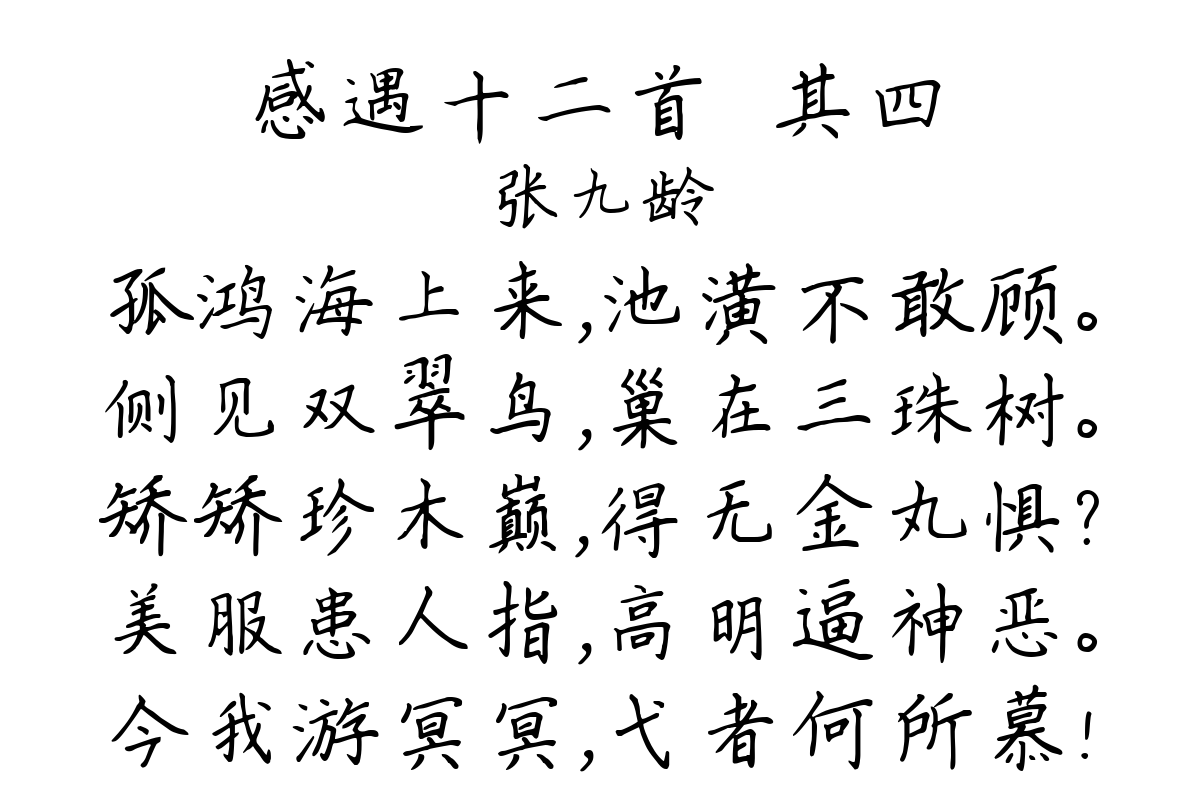 感遇十二首 其四
张九龄
孤鸿海上来,池潢不敢顾。
侧见双翠鸟,巢在三珠树。
矫矫珍木巅,得无金丸惧?
美服患人指,高明逼神恶。
今我游冥冥,弋者何所慕!